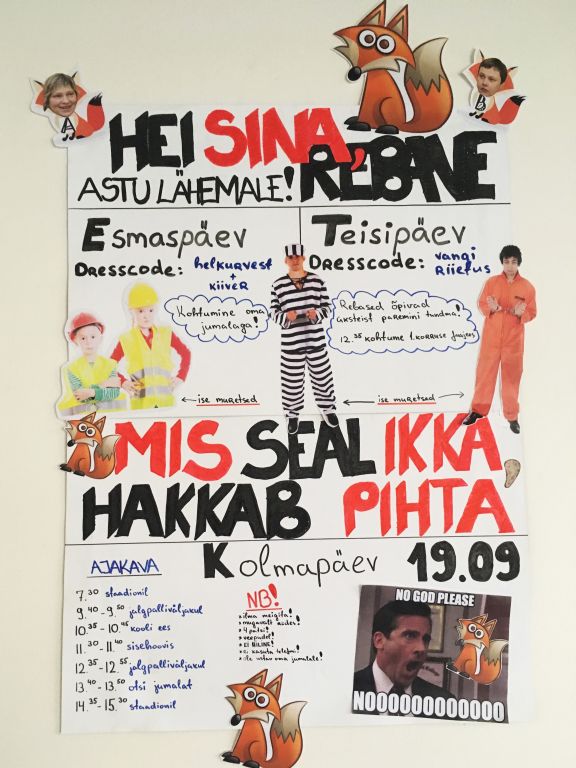 A
B
HEI SINA,
REBANE
ASTU LÄHEMALE!
Esmaspäev
DRESSCODE: helkurvest
+
kiiver
Kohtumine oma
jumalaga!
← ise muretsed
Teisipäev
DRESSCODE: vangi
RIIETUS
Rebased õpivad
üksteist paremini tundma!
12.35 kohtume 1. korruse fuajees
← ise muretsed →
MIS SEAL IKKA,
HAKKAB PIHTA
Kolmapäev 19.09
AJAKAVA
7.30 staadionil
9.40-9.50 jalgpalliväljakul
10.35-10.45 kooli ees
11.30-11.40 sisehoovis
12.35-12.55 jalgpalliväljakul
13.40-13.50 otsi jumalat
14.35-15.30 staadionil
NB!
* ilma meigita!
* mugavalt riides!
* 4 patsi!
* veepudel!
* EI HILINE!
* ei kasuta telefoni!
* ole ustav oma jumalale!
NO GOD PLEASE
NOOOOOOOOOOOO